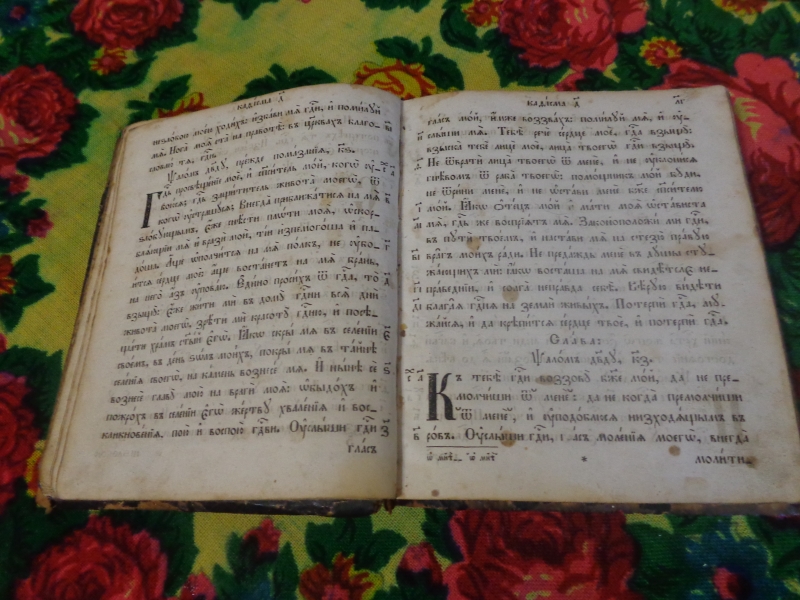 каѳісма д҃
неѕлобои моеи ходихъ: избави мѧ гдⷭ҇и, и помилуй
мѧ. Нога моѧ ста на правотѣ: въ цр҃квахъ благо-
словлѧ тѧ, гдⷭ҇и.
Ѱаломъ дв҃ду, прежде помазаніѧ, к҃ѕ.
Гдⷭ҇ь просвѣщеніе мое, и сп҃ситель мой, когѡ ᲂу-
боюсѧ; гдⷭ҇ь защититель живота моегѡ, ѿ
когѡ ᲂустрашусѧ; Внегда приближатисѧ на мѧ
ѕлобующымъ, еже снѣсти плѡти моѧ, ѡскор-
блѧющіи мѧ и врази мои, тіи изнемогоша и па-
доша. Аще ѡполчитсѧ на мѧ полкъ, не ᲂубо-
итсѧ сердце мое: аще востанетъ на мѧ брань,
на него азъ ᲂуповаю. Едино просихъ ѿ гдⷭ҇а, то
взыщу: еже жити ми въ дому гдⷭ҇ни всѧ дни
живота моегѡ, зрѣти ми красоту гдⷭ҇ню, и посѣ-
щати храмъ ст҃ый егѡ. Ꙗкѡ скры мѧ въ селеніи
своемъ, въ день ѕѡлъ моихъ, покры мѧ въ тайнѣ
селеніѧ своегѡ, на камень вознесе мѧ. И нынѣ се
вознесе главу мою на враги моѧ: ѡбыдохъ и
пожрохъ въ селеніи егѡ жертву хваленіѧ и вос-
кликновеніѧ, пою и воспою гдⷭ҇ви. Оуслыши гдⷭ҇и
гласъ
каѳісма д҃ л҃г
гласъ мой, имже воззвахъ: помилуй мѧ, и ᲂу-
слыши мѧ. Тебѣ рече сердце мое, гдⷭ҇а взыщу:
взыска тебе лице мое, лица твоегѡ гдⷭ҇и взыщу.
Не ѿврати лица твоегѡ ѿ мене, и не ᲂуклонисѧ
гнѣвомъ ѿ раба твоегѡ: помощникъ мой буди,
не ѿрини мене, и не ѡстави мене бж҃е сп҃сителю
мой. Ꙗкѡ ѻтецъ мой и мати моѧ ѡстависта
мѧ, гдⷭ҇ь же воспріѧтъ мѧ. Законоположи ми гдⷭ҇и,
въ пути твоемъ, и настави мѧ на стезю правую
врагъ моихъ ради. Не предаждь мене въ душы сту-
жающихъ ми: ꙗкѡ восташа на мѧ свидѣтеле не-
праведніи, и солга неправда себѣ. Вѣрую видѣти
благаѧ гдⷭ҇нѧ на земли живыхъ. Потерпи гдⷭ҇а, му-
жайсѧ, и да крѣпитсѧ сердце твое, и потерпи гдⷭ҇а.
Слава:
Ѱаломъ дв҃ду, к҃з.
Къ тебѣ гдⷭ҇и воззову бж҃е мой, да не пре-
молчиши ѿ мене: да не когда премолчиши
ѿ мене, и ᲂуподоблюсѧ низходѧщымъ въ
ровъ. Оуслыши гдⷭ҇и, гласъ моленіѧ моегѡ, внегда
молити-